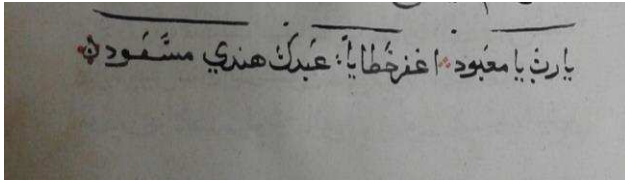 يارب يا معبود اغفر خطايا عبدك هندي مسعود